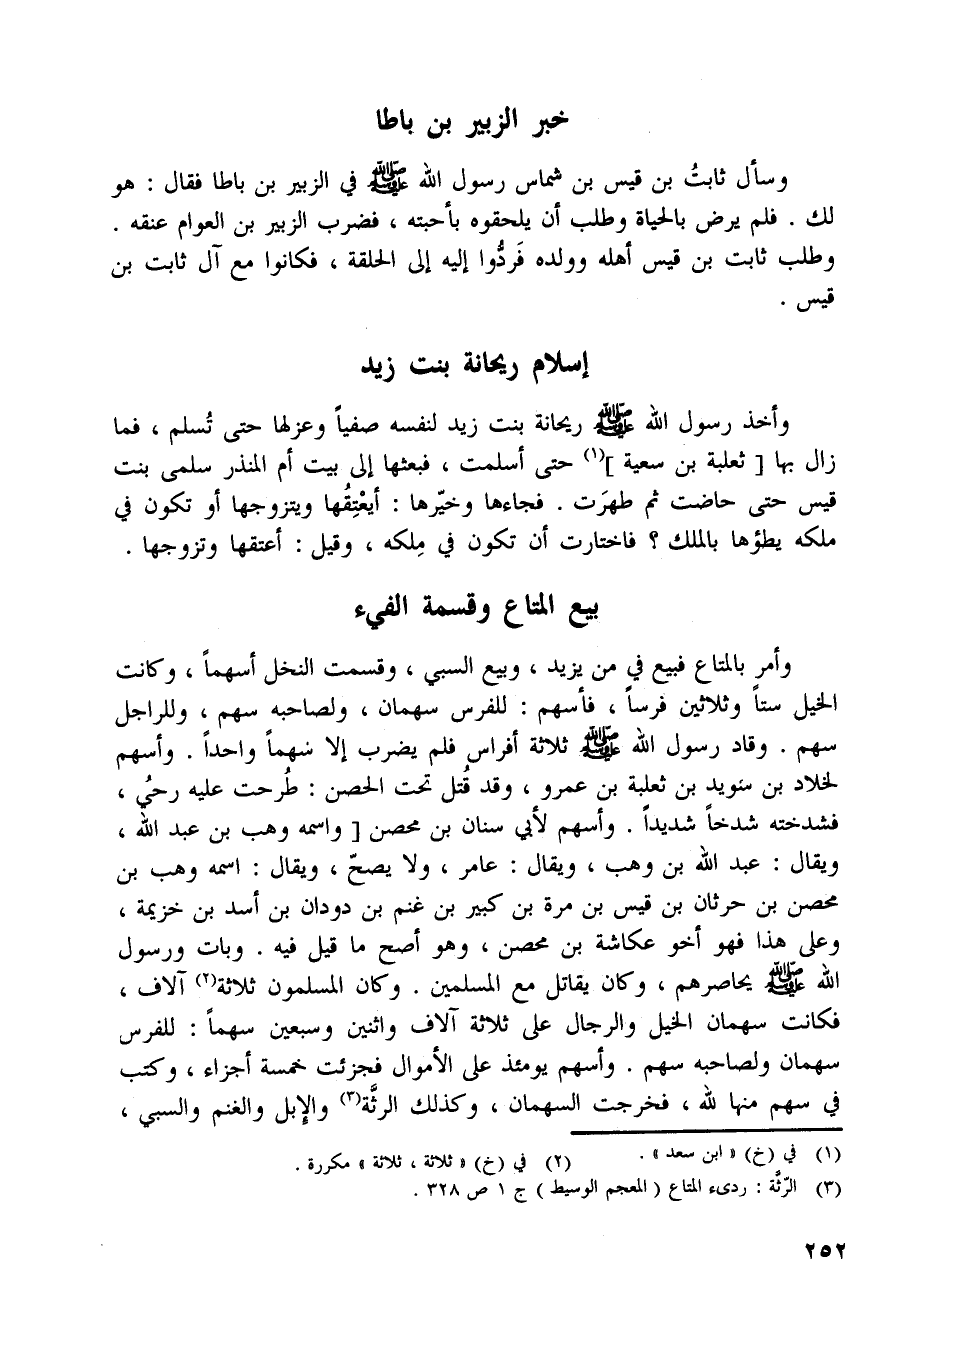 خبر الزبير بن باطا
وسأل ثابتُ بن قيس بن شماس رسول الله ﷺ في الزبير بن باطا فقال : هو
لك . فلم يرض بالحياة وطلب أن يلحقوه بأحبته ، فضرب الزبير بن العوام عنقه .
وطلب ثابت بن قيس أهله وولده فَردُّوا إليه إلى الحلقة ، فكانوا مع آل ثابت بن
قيس .
إسلام ريحانة بنت زيد
وأخذ رسول الله ﷺ ريحانة بنت زيد لنفسه صفياً وعزلها حتى تُسلم ، فما
زال بها [ ثعلبة بن سعية ](١) حتى أسلمت ، فبعثها إلى بيت أم المنذر سلمى بنت
قيس حتى حاضت ثم طهرَت . فجاءها وخيّرها : أيعْتِقُها ويتزوجها أو تكون في
ملكه يطؤها بالملك ؟ فاختارت أن تكون في مِلكه ، وقيل : أعتقها وتزوجها .
بيع المتاع وقسمة الفيء
وأمر بالمتاع فبيع في من يزيد ، وبيع السبي ، وقسمت النخل أسهماً ، وكانت
الخيل ستاً وثلاثين فرساً ، فأسهم : للفرس سهمان ، ولصاحبه سهم ، وللراجل
سهم . وقاد رسول الله ﷺ ثلاثة أفراس فلم يضرب إلا سَهماً واحداً . وأسهم
لخلاد بن سُويد بن ثعلبة بن عمرو ، وقد قُتل تحت الحصن : طُرحت عليه رحىُ ،
فشدخته شدخاً شديداً . وأسهم لأبي سنان بن محصن [ واسمه وهب بن عبد الله ،
ويقال : عبد الله بن وهب ، ويقال : عامر ، ولا يصحّ ، ويقال : اسمه وهب بن
محصن بن حرثان بن قيس بن مرة بن كبير بن غنم بن دودان بن أسد بن خزيمة ،
وعلى هذا فهو أخو عكاشة بن محصن ، وهو أصح ما قيل فيه . وبات ورسول
الله ﷺ يحاصرهم ، وكان يقاتل مع المسلمين . وكان المسلمون ثلاثة(٢) آلاف ،
فكانت سهمان الخيل والرجال على ثلاثة آلاف واثنين وسبعين سهماً : للفرس
سهمان ولصاحبه سهم . وأسهم يومئذ على الأموال فجزئت خمسة أجزاء ، وكتب
في سهم منها لله ، فخرجت السهمان ، وكذلك الرثَّة(٣) والإبل والغنم والسبي ،
(١) في (خ) « ابن سعد » . (٢) في (خ) « ثلاثة ، ثلاثة » مكررة .
(٣) الرّثَّة : ردىء المتاع ( المعجم الوسيط ) ج ١ ص ٣٢٨ .
٢٥٢